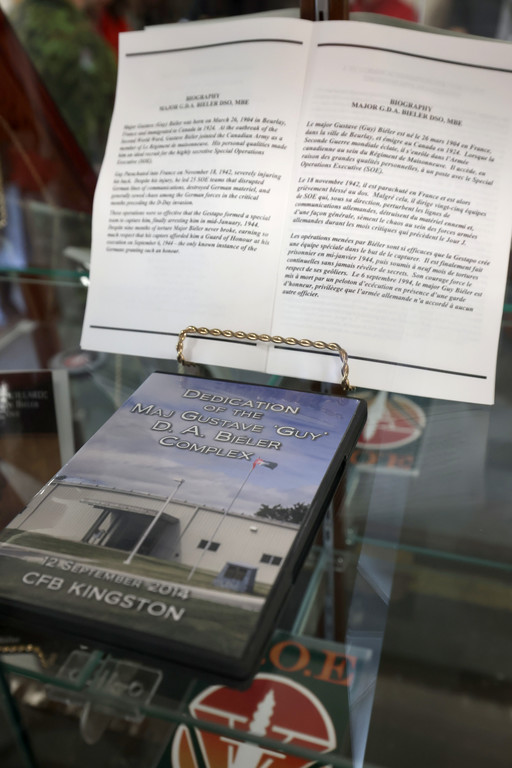 BIOGRAPHY
MAJOR G.D.A. BIELER DSO, MBE
Major Gustave (Guy) Biéler was born on March 26, 1904 in Bourlay,
France and immigrated to Canada in 1924. At the outbreak of the
Second World War, Gustave Biéler joined the Canadian Army as a
member of Le Régiment de maisonneuve. His personal qualities made
him an ideal recruit for the highly secretive Special Operations
Executive (SOE).
Guy Parachuted into France on November 18, 1942, severely injuring
his back. Despite his injury, he led 25 SOE teams that disrupted
German lines of communications, destroyed German materiel, and
generally sowed chaos among the German forces in the critical
months preceding the D-Day invasion.
These operations were so effective that the Gestapo formed a special
team to capture him, finally arresting him in mid-January, 1944.
Despite nine months of torture Major Bieler never broke, earning so
much respect that his captors afforded him a Guard of Honour at his
execution on September 6, 1944 - the only known instance of the
Germans granting such an honour.
BIOGRAPHY
MAJOR G.D.A. BIELER DSO, MBE
Le major Gustave (Guy) Biéler est né le 26 mars 1904 en France,
dans la ville de Bourlay, et émigre au Canada en 1924. Lorsque la
Seconde Guerre mondiale éclate, il s'enrôle dans l'Armée
canadienne au sein du Régiment de Maisonneuve. Il accède, en
raison des grandes qualités personnelles, à un poste avec le Special
Operations Executive (SOE).
Le 18 novembre 1942, il est parachuté en France et est alors
grièvement blessé au dos. Malgré cela, il dirige vingt-cinq équipes
de SOE qui, sous sa direction, perturbent les lignes de
communications allemandes, détruisent du matériel ennemi et,
d'une façon générale, sèment le chaos au sein des forces armées
allemandes durant les mois critiques qui précèdent le Jour J.
Les opérations menées par Biéler sont si efficaces que la Gestapo crée
une équipe spéciale dans le but de le capturer. Il est finalement fait
prisonnier en mi-janvier 1944, puis soumis à neuf mois de tortures
continuelles sans jamais révéler de secrets. Son courage force le
respect de ses geôliers. Le 6 septembre 1944, le major Guy Biéler est
mis à mort par un peloton d'exécution en présence d'une garde
d'honneur, privilège que l'armée allemande n'a accordé à aucun
autre officier.
DEDICATION
OF THE
MAJ GUSTAVE 'GUY'
D. A. BIELER
COMPLEX
12 SEPTEMBER 2014
CFB KINGSTON
O.E